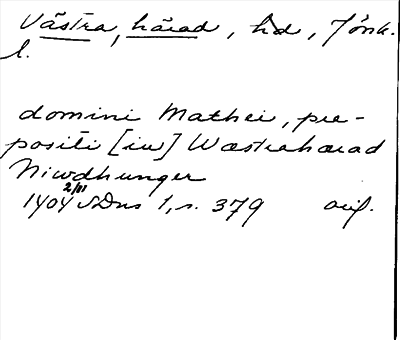 Västra, härad, hd, Jönk.
l.
domini Mathei, pre-
positi [in] Wæstrahærad
Niwdhunger
1404 2/11 SDns 1, s. 379 avs.